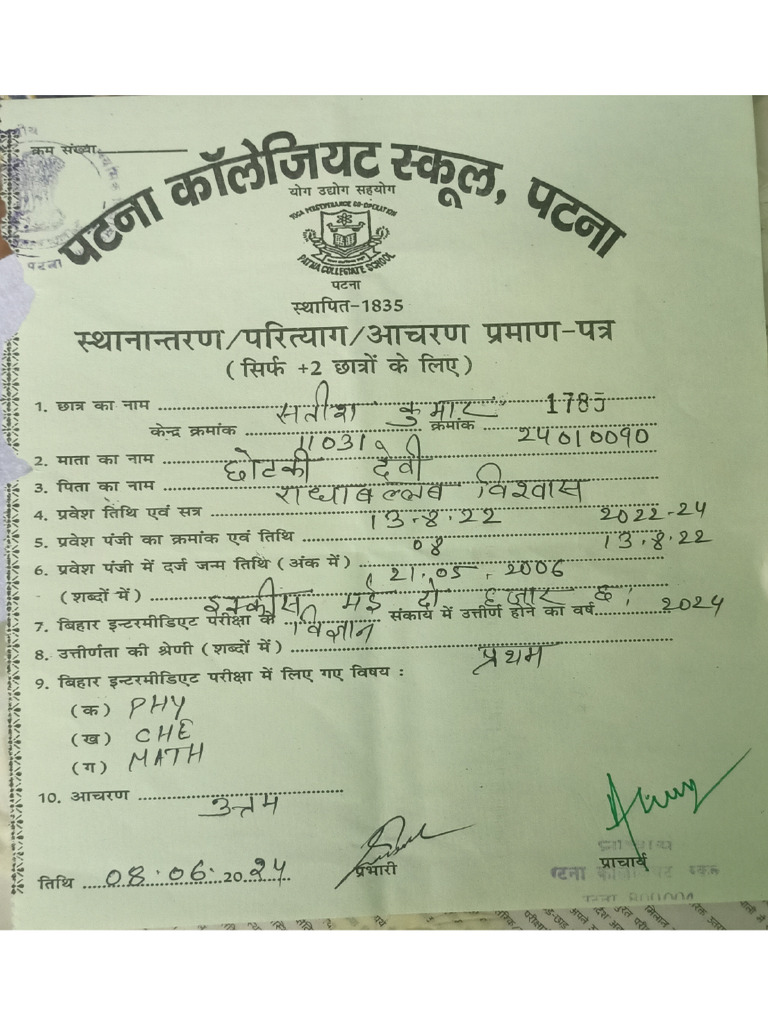 क्रम संख्या
पटना कॉलेजियट स्कूल, पटना
योग उद्योग सहयोग
PATNA COLLEGIATE SCHOOL
पटना
स्थापित-1835
स्थानान्तरण/परित्याग/आचरण प्रमाण-पत्र
(सिर्फ +2 छात्रों के लिए)
1. छात्र का नाम सतीश कुमार
केन्द्र क्रमांक 11031 क्रमांक 24010090
2. माता का नाम छोटकी देवी
3. पिता का नाम राधाबल्लब विश्वास
4. प्रवेश तिथि एवं सत्र 13-8-22 2022-24
5. प्रवेश पंजी का क्रमांक एवं तिथि 08 13.8.22
6. प्रवेश पंजी में दर्ज जन्म तिथि (अंक में) 21.05.2006
(शब्दों में) इक्कीस मई दो हजार छः
7. बिहार इन्टरमीडिएट परीक्षा के विज्ञान संकाय में उत्तीर्ण होने का वर्ष 2024
8. उत्तीर्णता की श्रेणी (शब्दों में) प्रथम
9. बिहार इन्टरमीडिएट परीक्षा में लिए गए विषय :
(क) PHY
(ख) CHE
(ग) MATH
10. आचरण उत्तम
तिथि 08.06.2024 प्रभारी प्राचार्य